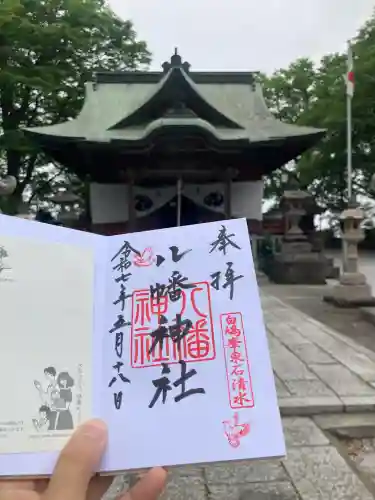 奉拝
白鳩峯東石清水
八幡神社
八幡
神社
令和七年五月十八日